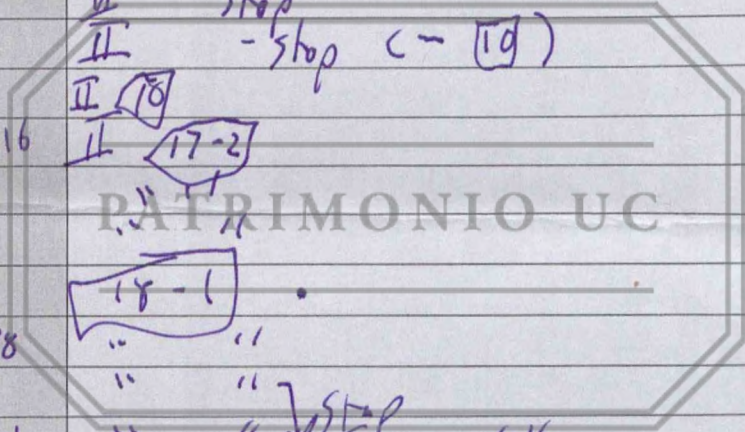 II stop
II - stop (- 10)
II 18
16 II 17-2
" "
PATRIMONIO UC
18-1 .
8 " "
" "
stop
" "